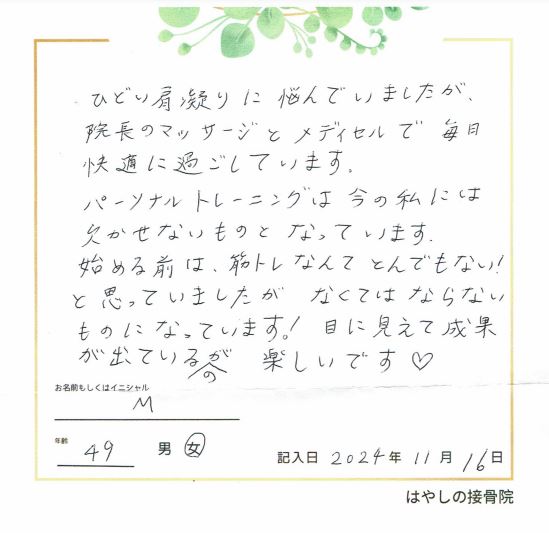 ひどい肩凝りに悩んでいましたが、
院長のマッサージとメディセルで毎日
快適に過ごしています。
パーソナルトレーニングは今の私には
欠かせないものとなっています。
始める前は、筋トレなんてとんでもない!
と思っていましたがなくてはならない
ものになっています。! 目に見えて成果
が出ているのが 楽しいです♡
お名前もしくはイニシャル
M
年齢 49 男 女 記入日 2024年 11月 16日
はやしの接骨院